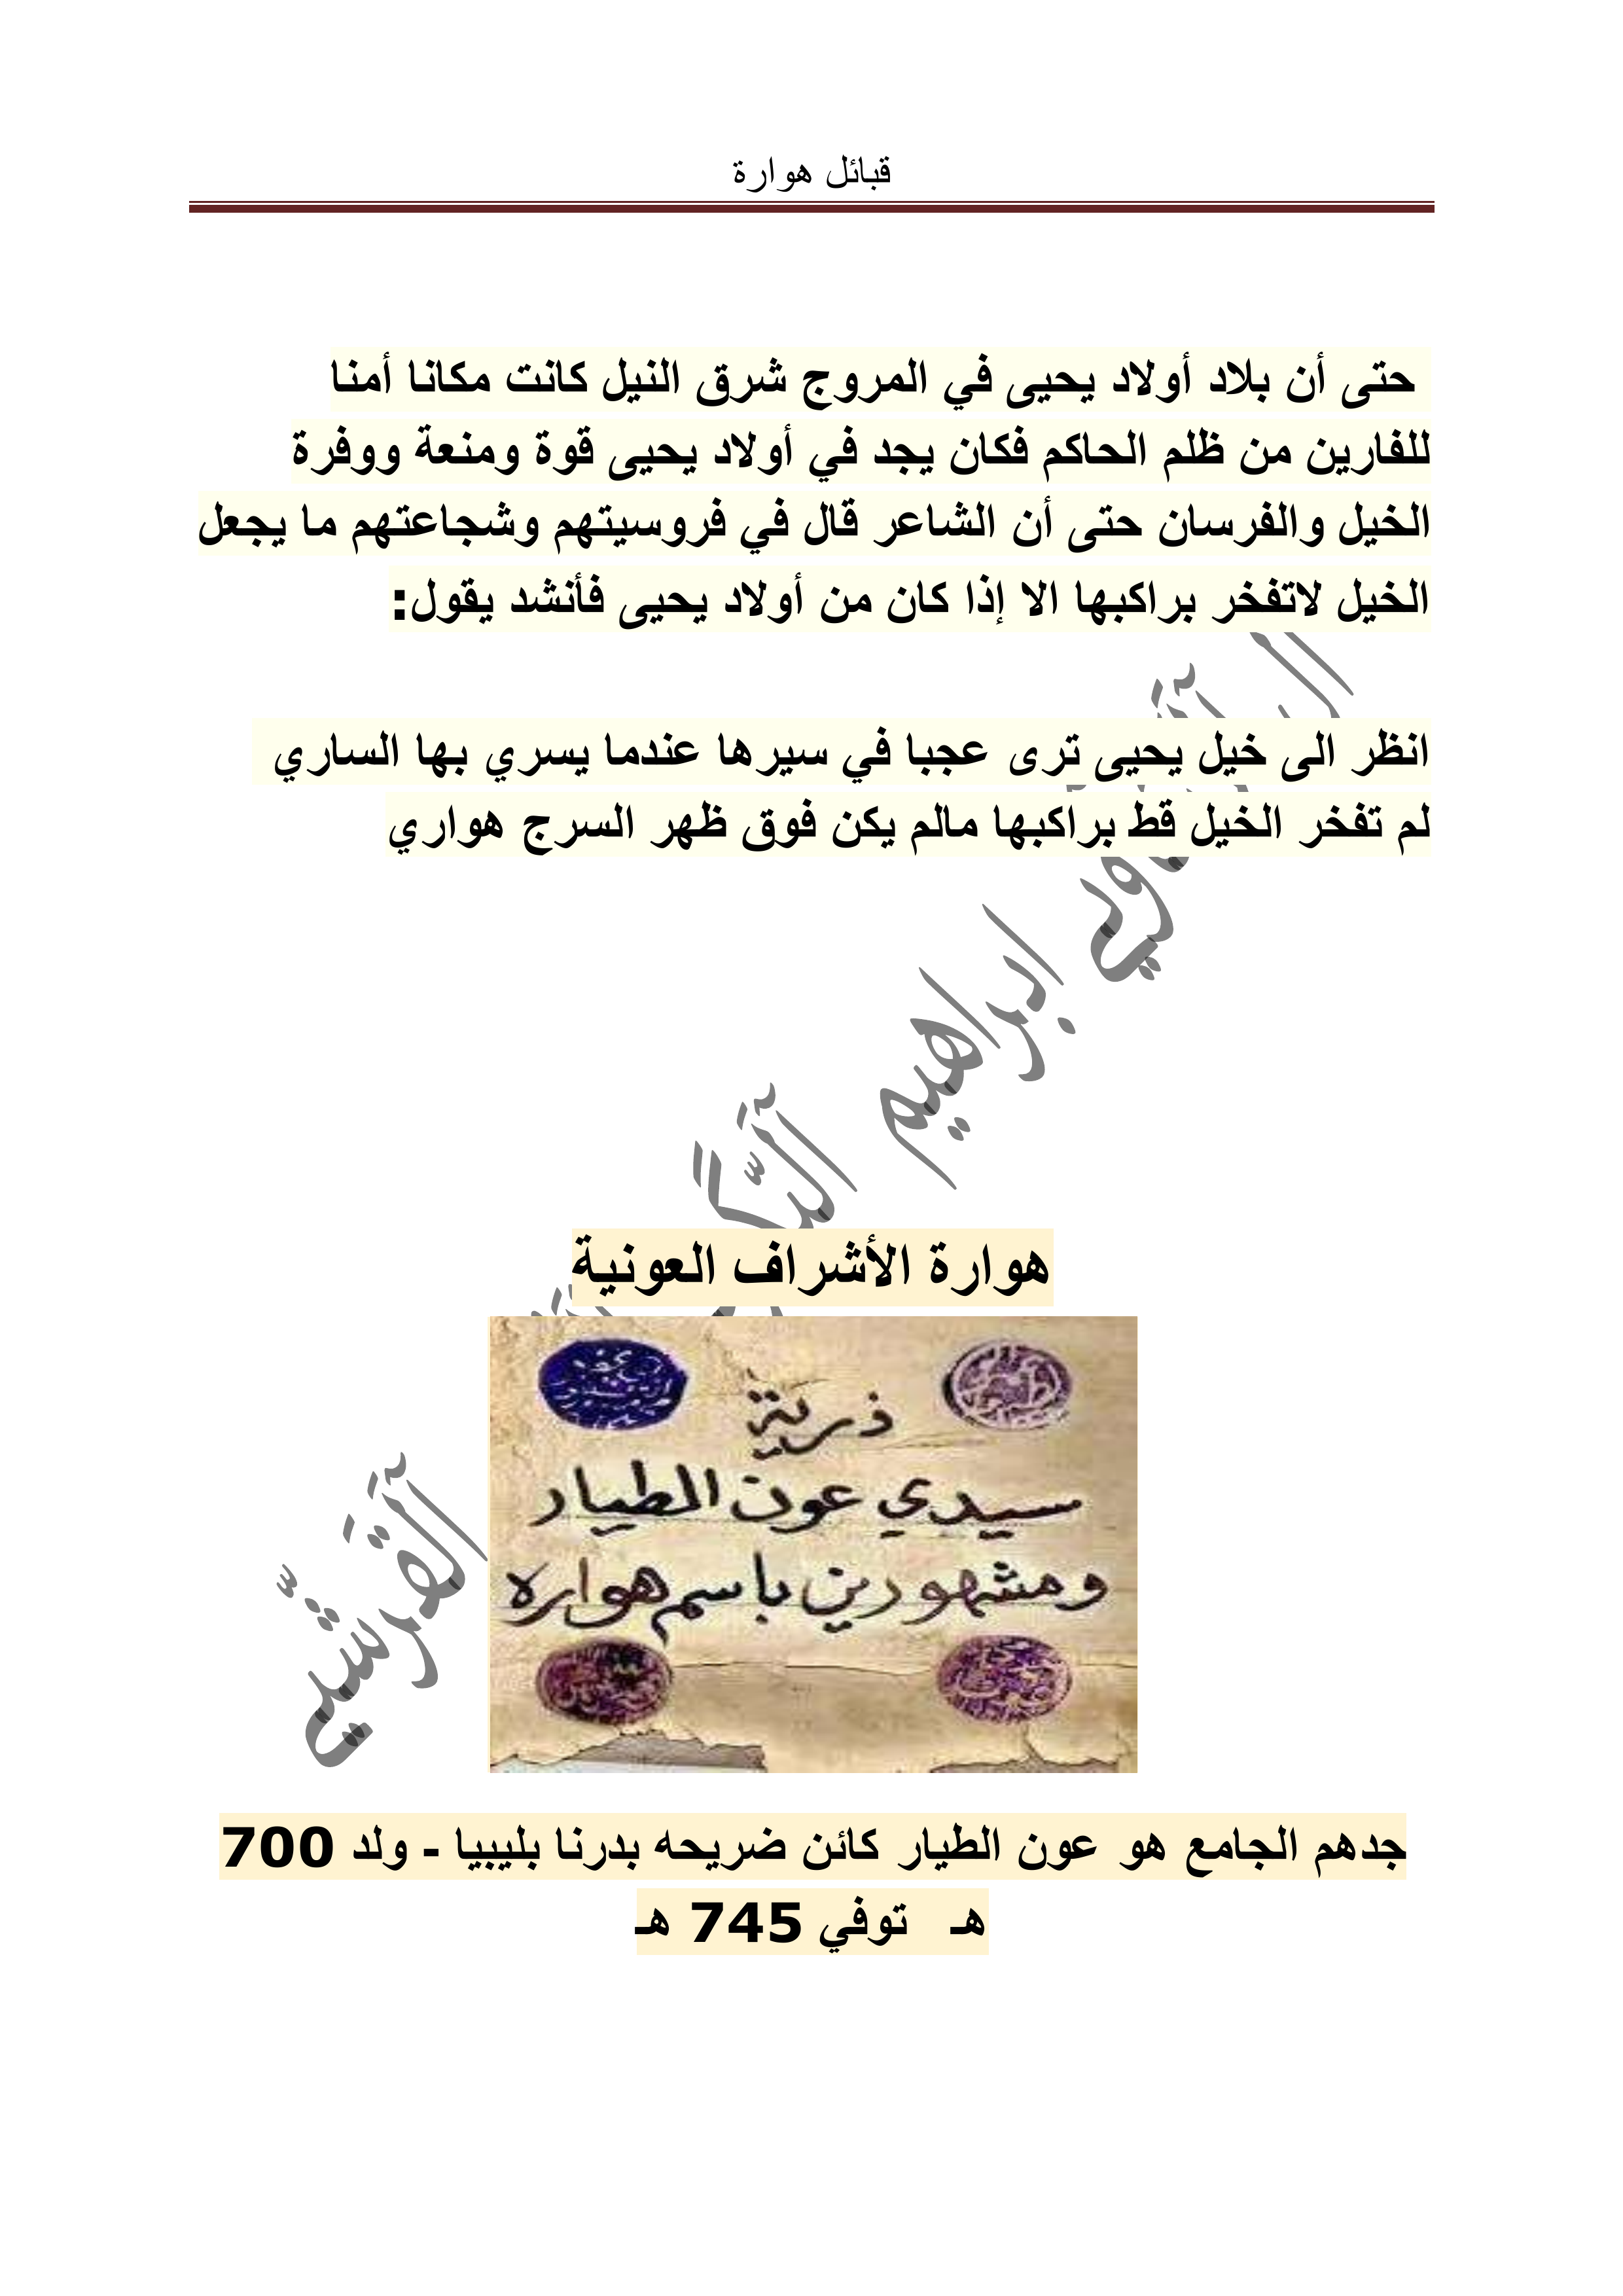 قبائل هوارة
حتى أن بلاد أولاد يحيى في المروج شرق النيل كانت مكانا أمنا
للفارين من ظلم الحاكم فكان يجد في أولاد يحيى قوة ومنعة ووفرة
الخيل والفرسان حتى أن الشاعر قال في فروسيتهم وشجاعتهم ما يجعل
الخيل لاتفخر براكبها الا إذا كان من أولاد يحيى فأنشد يقول:
انظر الى خيل يحيى ترى عجبا في سيرها عندما يسري بها الساري
لم تفخر الخيل قط براكبها مالم يكن فوق ظهر السرج هواري
ابراهيم
هوارة الأشراف العونية
ذرية
سيدي عون الطيار
ومشهورين باسم هواره
جدهم الجامع هو عون الطيار كائن ضريحه بدرنا بليبيا - ولد 700
هـ توفي 745 هـ